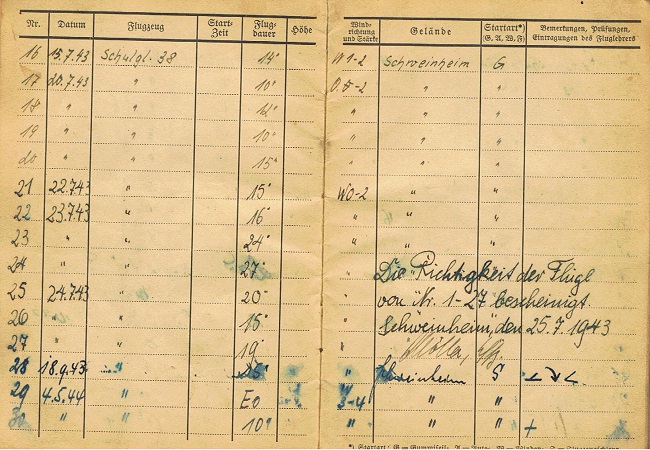 Nr. Datum Flugzeug Start-Zeit Flug-dauer Höhe Wind-richtung und Stärke Gelände Startart*) (G. A. W. F) Bemerkungen, Prüfungen, Eintragungen des Fluglehrers
16 15.7.43 Schulgl. 38 14" W 1-2 Schweinheim G
17 20.7.43 " 10" O.5-2 " "
18 " " 12" " "
19 " " 10" " "
20 " " 15" " "
21 22.7.43 " 15" WO-2 " "
22 23.7.43 " 16" " " "
23 " " 24" " " "
24 " " 27" " Die Richtigkeit der Flüge
25 24.7.43 " 20" " von Nr. 1-27 bescheinigt
26 " " 15" " Schweinheim, den 25.7.1943
27 " " 19" "
28 18.9.43 " " Schweinheim S
29 4.5.44 " 3-4 " "
30 " " 10" " " " +